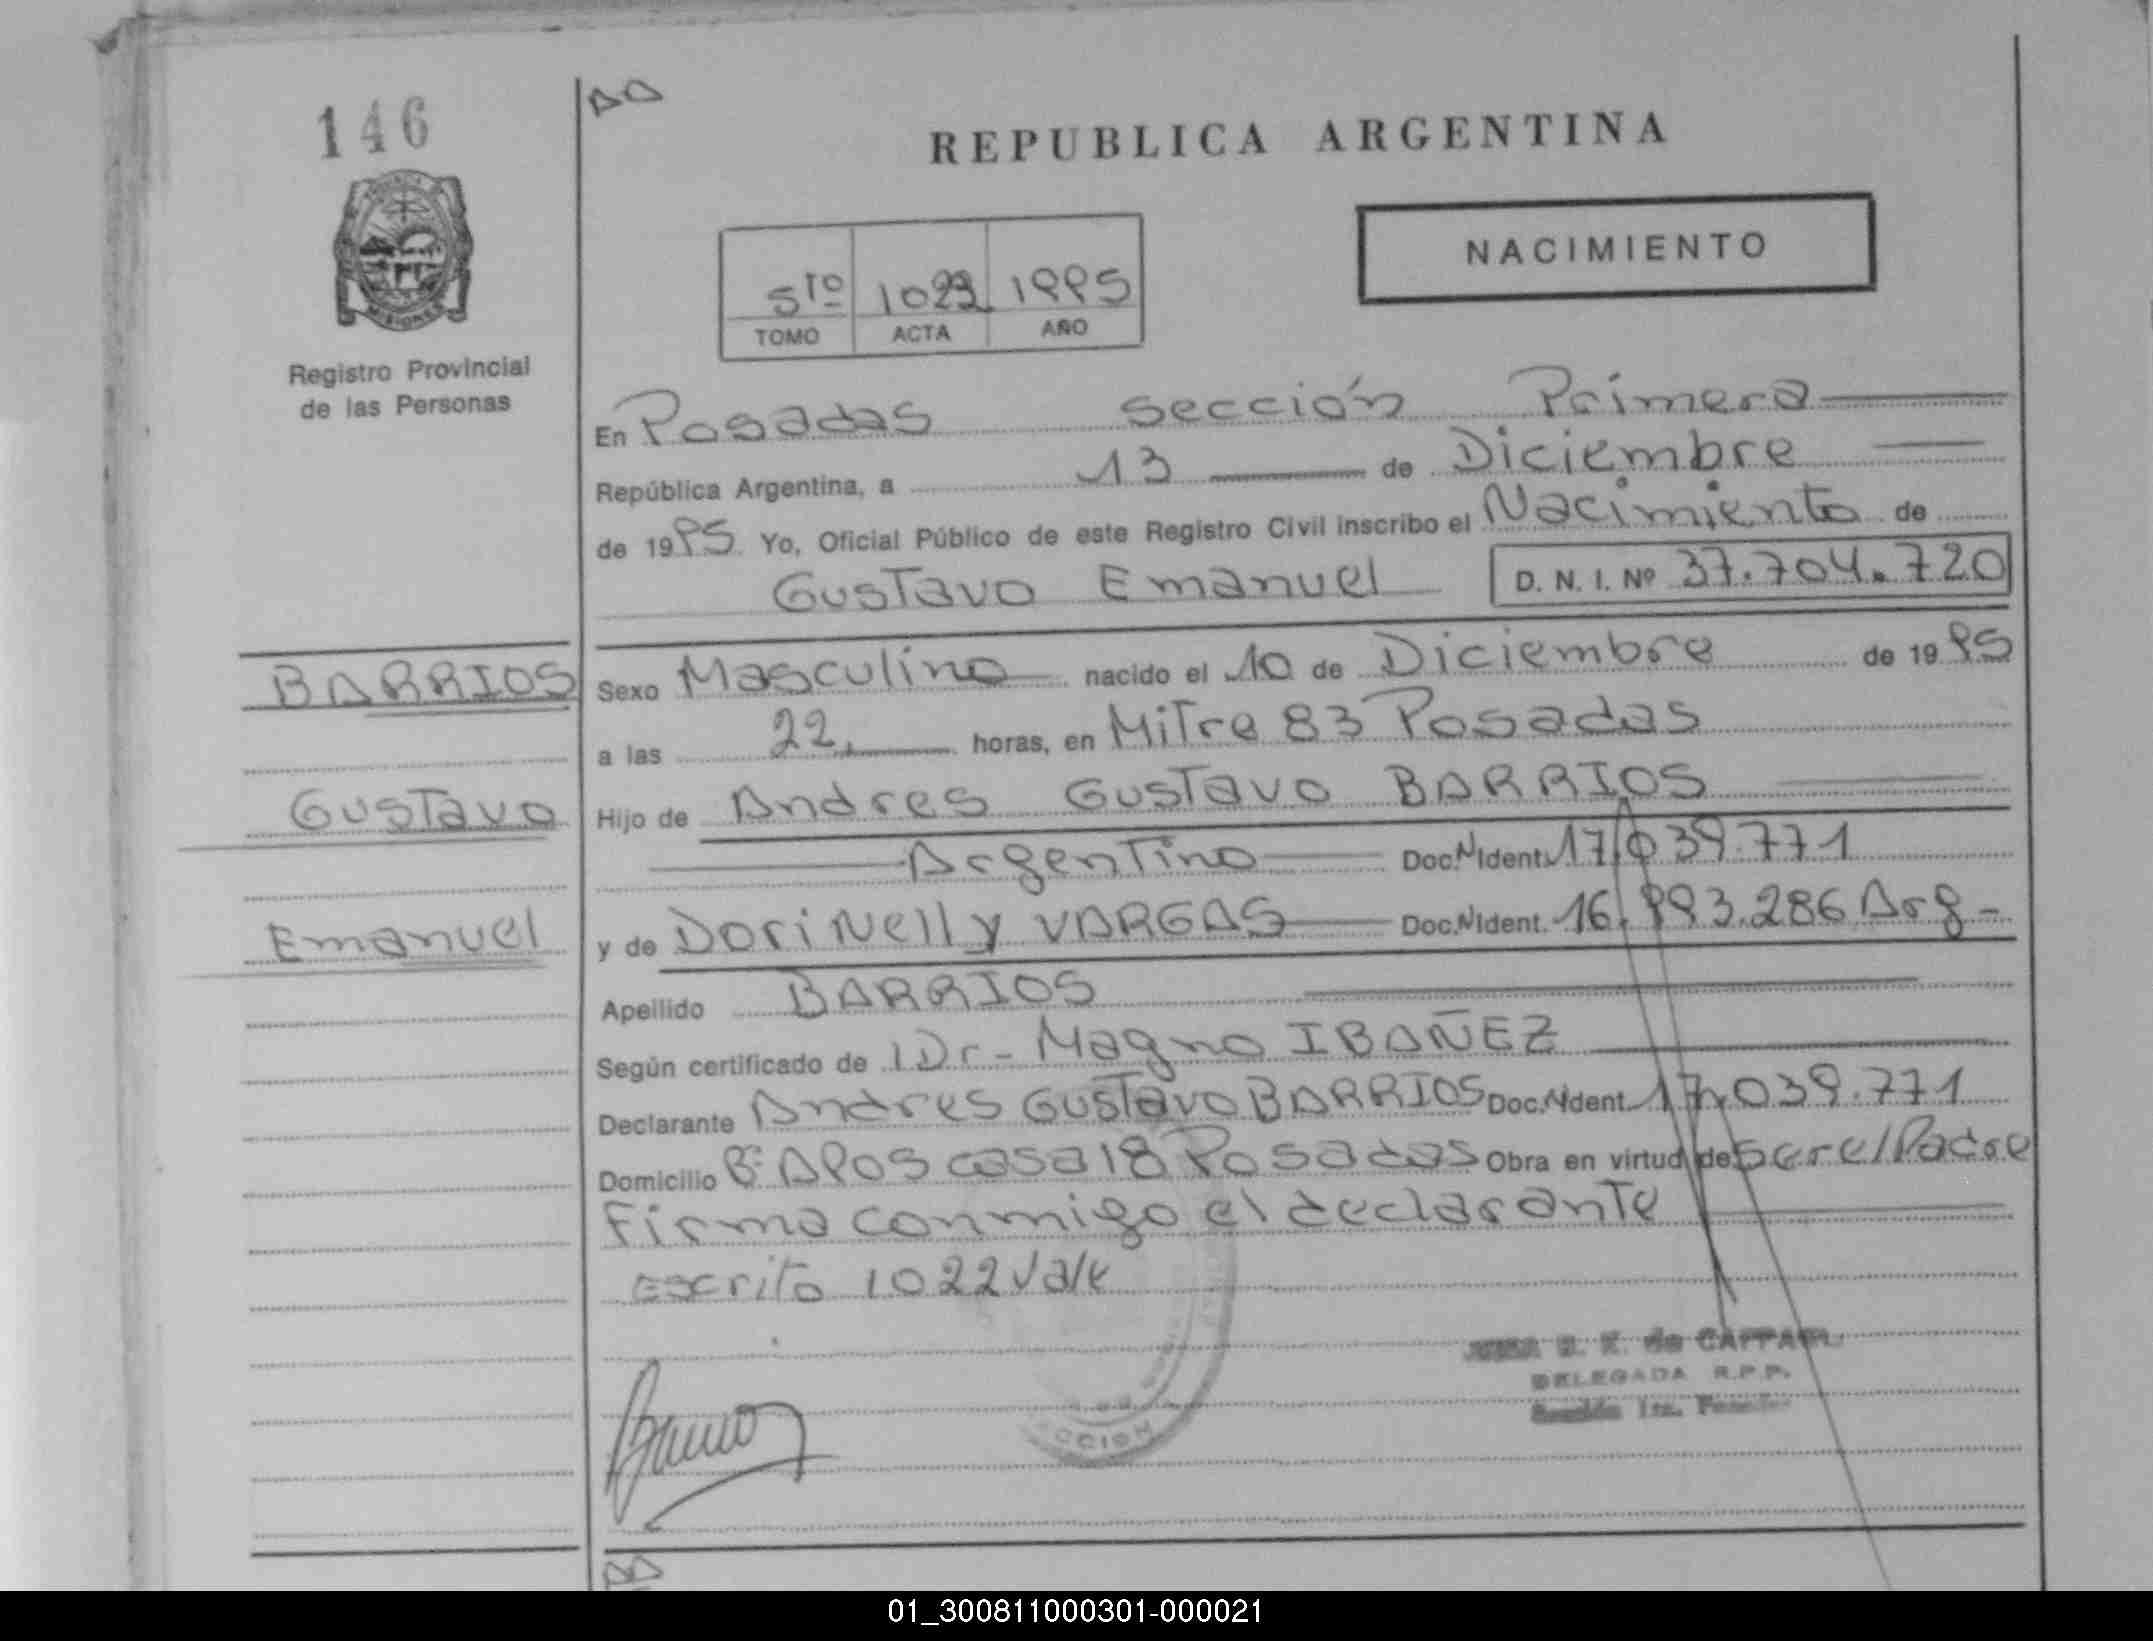 146
REPUBLICA ARGENTINA
PROVINCIA DE MISIONES
NACIMIENTO
5to 1022 1995
TOMO ACTA AÑO
Registro Provincial
de las Personas
En Posadas sección Primera
República Argentina, a 13 de Diciembre
de 1995 Yo, Oficial Público de este Registro Civil inscribo el Nacimiento de
Gustavo Emanuel D. N. I. Nº 37.704.720
BARRIOS
Gustavo
Emanuel
Sexo Masculino nacido el 10 de Diciembre de 1995
a las 22, horas, en Mitre 83 Posadas
Hijo de Andres Gustavo BARRIOS
Argentino Doc.N Ident. 17.039.771
y de Dori Nelly VARGAS Doc.N Ident. 16.993.286 Arg-
Apellido BARRIOS
Según certificado de Dr- Magno IBAÑEZ
Declarante Andres Gustavo BARRIOS Doc.N Ident. 17.039.771
Domicilio Bº APOS casa 18 Posadas Obra en virtud de ser el Padre
Firma conmigo el declarante
Escrito 1022 Vale
DELEGADA R.P.P.
01_300811000301-000021